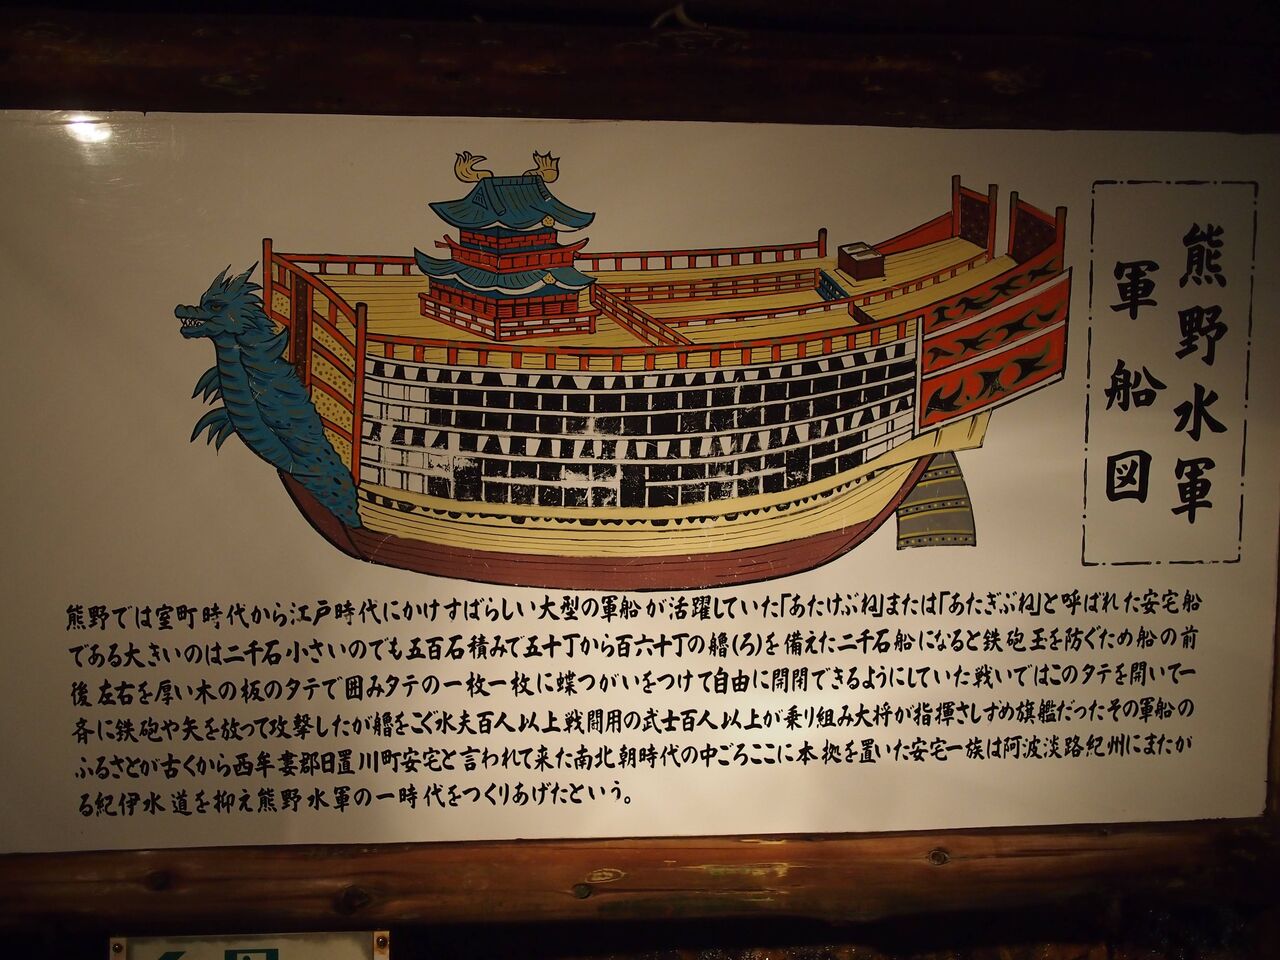 熊野水軍
軍船図
熊野では室町時代から江戸時代にかけすばらしい大型の軍船が活躍していた「あたけぶね」または「あたぎぶね」と呼ばれた安宅船
である大きいのは二千石小さいのでも五百石積みで五十丁から百六十丁の艪(ろ)を備えた二千石船になると鉄砲玉を防ぐため船の前
後左右を厚い木の板のタテで囲みタテの一枚一枚に蝶つがいをつけて自由に開閉できるようにしていた戦いではこのタテを開いて一
斉に鉄砲や矢を放って攻撃したが艪をこぐ水夫百人以上戦闘用の武士百人以上が乗り組み大将が指揮さしずめ旗艦だったその軍船の
ふるさとが古くから西牟婁郡日置川町安宅と言われて来た南北朝時代の中ごろここに本拠を置いた安宅一族は阿波淡路紀州にまたが
る紀伊水道を抑え熊野水軍の一時代をつくりあげたという。